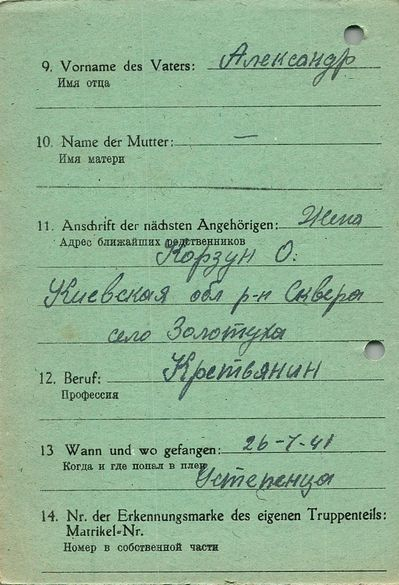 9. Vorname des Vaters: Александр
Имя отца
10. Name der Mutter: —
Имя матери
11. Anschrift der nächsten Angehörigen: Жена
Адрес ближайших родственников
Корзун О.
Киевская обл р-н Сквера
село Золотуха
12. Beruf: Кретьянин
Профессия
13 Wann und wo gefangen: 26-7-41
Когда и где попал в плен
14. Nr. der Erkennungsmarke des eigenen Truppenteils:
Matrikel-Nr.
Номер в собственной части